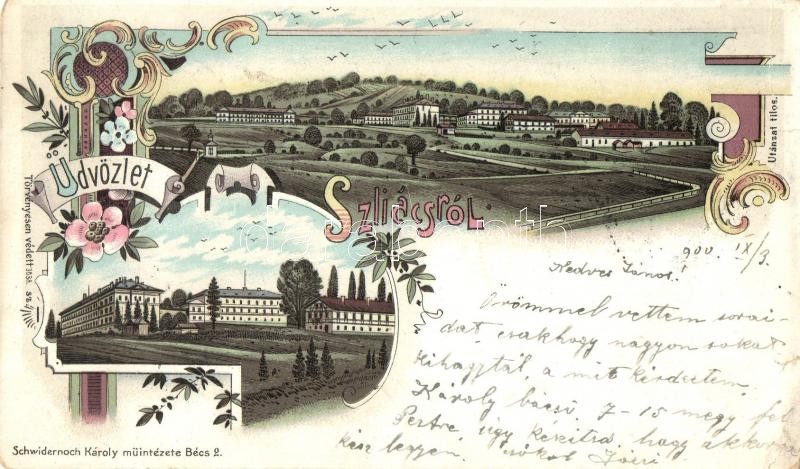 Üdvözlet
Szliácsról
Utánzat tilos.
Törvényesen védett
900. IX/3
Kedves János!
Örömmel vettem sorai-
dat, csakhogy nagyon sokat
kihagytál, a mit kérdeztem.
Károly bácsi 7-15 megy fel
Pestre, úgy készítsd, hogy akkorra
kész legyen. csókol Józsi
Schwidernoch Károly műintézete Bécs 2.